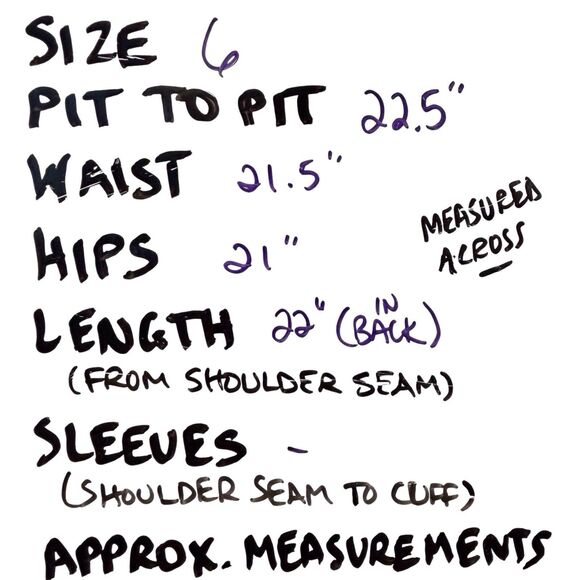 SIZE 6
PIT TO PIT 22.5"
WAIST 21.5"
MEASURED
ACROSS
HIPS 21"
LENGTH 22" (IN BACK)
(FROM SHOULDER SEAM)
SLEEVES -
(SHOULDER SEAM TO CUFF)
APPROX. MEASUREMENTS